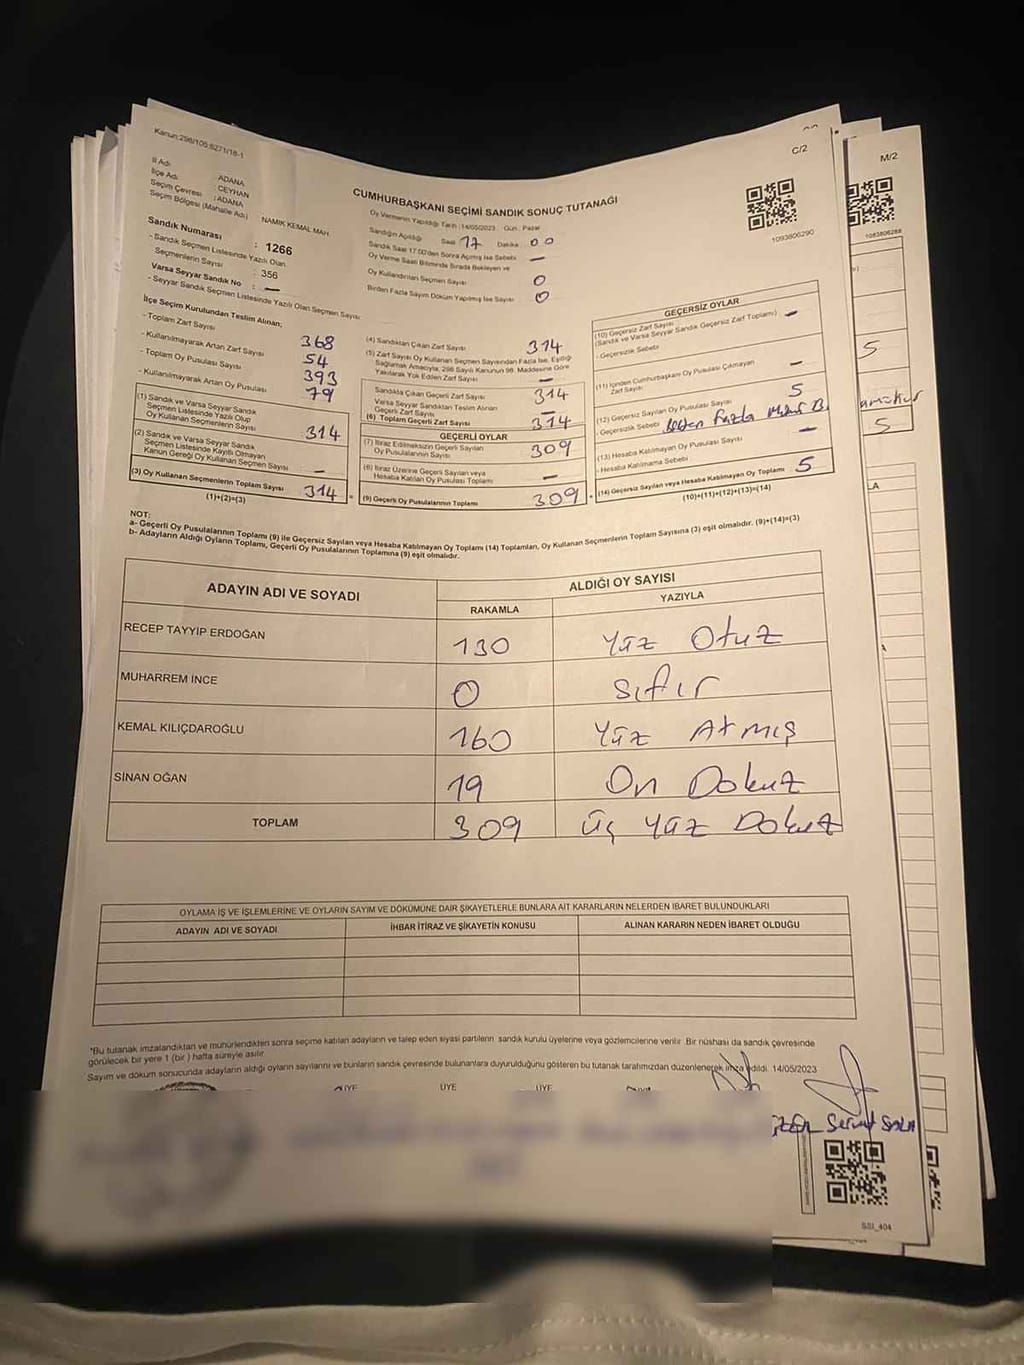 Kanun:298/105;6271/18-1
C/2
M/2
İl Adı ADANA
İlçe Adı : CEYHAN
Seçim Çevresi : ADANA
Seçim Bölgesi (Mahalle Adı) NAMIK KEMAL MAH.
CUMHURBAŞKANI SEÇİMİ SANDIK SONUÇ TUTANAĞI
1093806290
1093806288
Sandık Numarası : 1266
- Sandık Seçmen Listesinde Yazılı Olan
Seçmenlerin Sayısı : 356
Varsa Seyyar Sandık No : —
- Seyyar Sandık Seçmen Listesinde Yazılı Olan Seçmen Sayısı
Oy Vermenin Yapıldığı Tarih : 14/05/2023 Gün : Pazar
Sandığın Açıldığı Saat 17 Dakika 00
Sandık Saat 17.00'den Sonra Açılmış İse Sebebi —
Oy Verme Saati Bitiminde Sırada Bekleyen ve
Oy Kullandırılan Seçmen Sayısı 0
Birden Fazla Sayım Döküm Yapılmış İse Sayısı 0
İlçe Seçim Kurulundan Teslim Alınan;
- Toplam Zarf Sayısı 368
- Kullanılmayarak Artan Zarf Sayısı 54
- Toplam Oy Pusulası Sayısı 393
- Kullanılmayarak Artan Oy Pusulası 79
(1) Sandık ve Varsa Seyyar Sandık
Seçmen Listesinde Yazılı Olup
Oy Kullanan Seçmenlerin Sayısı 314
(2) Sandık ve Varsa Seyyar Sandık
Seçmen Listesinde Kayıtlı Olmayan
Kanun Gereği Oy Kullanan Seçmen Sayısı —
(3) Oy Kullanan Seçmenlerin Toplam Sayısı 314
(1)+(2)=(3)
(4) Sandıktan Çıkan Zarf Sayısı 314
(5) Zarf Sayısı Oy Kullanan Seçmen Sayısından Fazla İse, Eşitliği
Sağlamak Amacıyla, 298 Sayılı Kanunun 98. Maddesine Göre
Yakılarak Yok Edilen Zarf Sayısı —
Sandıkta Çıkan Geçerli Zarf Sayısı 314
Varsa Seyyar Sandıktan Teslim Alınan
Geçerli Zarf Sayısı —
(6) Toplam Geçerli Zarf Sayısı 314
GEÇERLİ OYLAR
(7) İtiraz Edilmeksizin Geçerli Sayılan
Oy Pusulalarının Sayısı 309
(8) İtiraz Üzerine Geçerli Sayılan veya
Hesaba Katılan Oy Pusulası Toplamı —
(9) Geçerli Oy Pusulalarının Toplamı 309
GEÇERSİZ OYLAR
(10) Geçersiz Zarf Sayısı —
(Sandık ve Varsa Seyyar Sandık Geçersiz Zarf Toplamı)
- Geçersizlik Sebebi
(11) İçinden Cumhurbaşkanı Oy Pusulası Çıkmayan
Zarf Sayısı —
(12) Geçersiz Sayılan Oy Pusulası Sayısı 5
- Geçersizlik Sebebi Birden Fazla Mühür
(13) Hesaba Katılmayan Oy Pusulası Sayısı —
- Hesaba Katılmama Sebebi
(14) Geçersiz Sayılan veya Hesaba Katılmayan Oy Toplamı 5
(10)+(11)+(12)+(13)=(14)
5
5
NOT:
a- Geçerli Oy Pusulalarının Toplamı (9) ile Geçersiz Sayılan veya Hesaba Katılmayan Oy Toplamı (14) Toplamları, Oy Kullanan Seçmenlerin Toplam Sayısına (3) eşit olmalıdır. (9)+(14)=(3)
b- Adayların Aldığı Oyların Toplamı, Geçerli Oy Pusulalarının Toplamına (9) eşit olmalıdır.
ADAYIN ADI VE SOYADI ALDIĞI OY SAYISI
RAKAMLA YAZIYLA
RECEP TAYYİP ERDOĞAN 130 Yüz Otuz
MUHARREM İNCE 0 Sıfır
KEMAL KILIÇDAROĞLU 160 Yüz Atmış
SİNAN OĞAN 19 On Dokuz
TOPLAM 309 Üç Yüz Dokuz
OYLAMA İŞ VE İŞLEMLERİNE VE OYLARIN SAYIM VE DÖKÜMÜNE DAİR ŞİKAYETLERLE BUNLARA AİT KARARLARIN NELERDEN İBARET BULUNDUKLARI
ADAYIN ADI VE SOYADI İHBAR İTİRAZ VE ŞİKAYETİN KONUSU ALINAN KARARIN NEDEN İBARET OLDUĞU
*Bu tutanak imzalandıktan ve mühürlendikten sonra seçime katılan adayların ve talep eden siyasi partilerin sandık kurulu üyelerine veya gözlemcilerine verilir. Bir nüshası da sandık çevresinde
görülecek bir yere 1 (bir) hafta süreyle asılır.
Sayım ve döküm sonucunda adayların aldığı oyların sayılarını ve bunların sandık çevresinde bulunanlara duyurulduğunu gösteren bu tutanak tarafımızdan düzenlenerek imza edildi. 14/05/2023
ÜYE ÜYE ÜYE
SSI_404